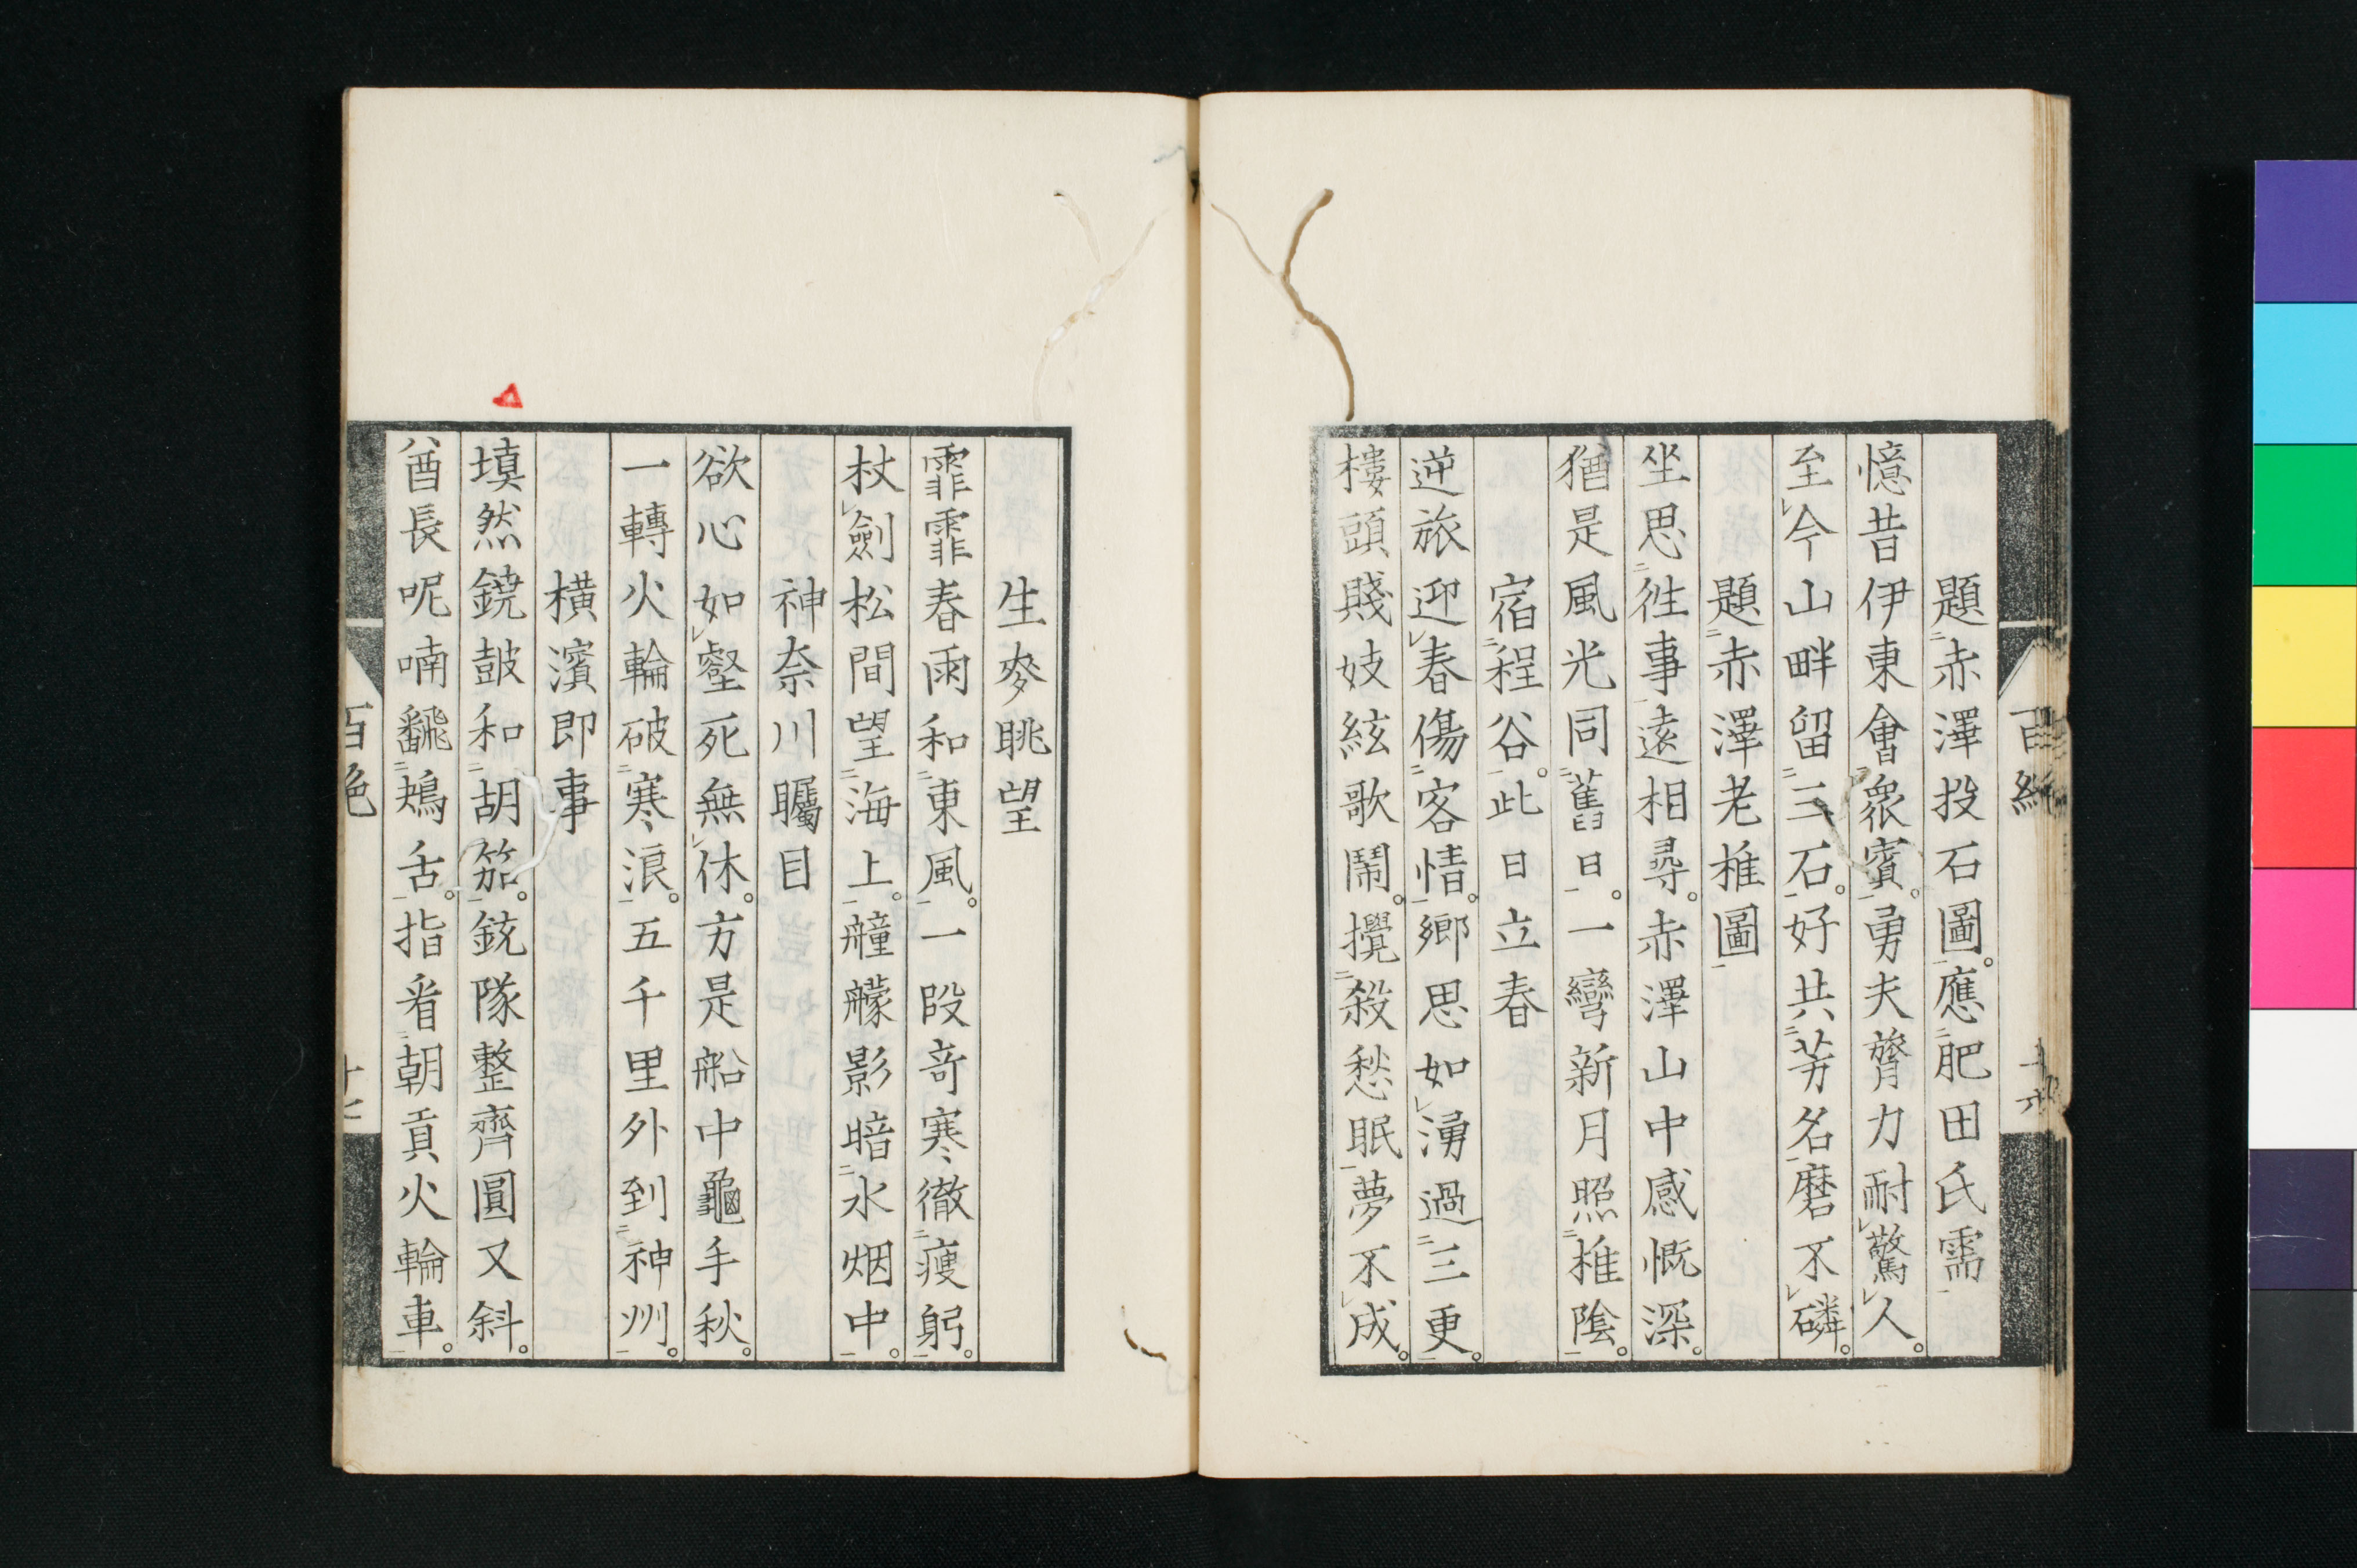 百絶 十六
題赤澤投石圖。應肥田氏需
憶昔伊東會衆賓。勇夫膂力耐驚人。
至今山畔留三石。好共芳名磨不磷。
題赤澤老椎圖
坐思徃事遠相尋。赤澤山中感慨深。
猶是風光同舊日。一彎新月照椎陰。
宿程谷。此日立春
逆旅迎春傷客情。鄉思如湧過三更。
樓頭賤妓絃歌鬧。攪殺愁眠夢不成。
生麥眺望
霏霏春雨和東風。一段竒寒徹瘦躬。
杖劍松間望海上。艟艨影暗水烟中。
神奈川矚目
欲心如壑死無休。方是船中龜手秋。
一轉火輪破寒浪。五千里外到神州。
橫濱即事
填然鐃皷和胡笳。銃隊整齊圓又斜。
酋長呢喃飜鴂舌。指看朝貢火輪車。
百絶 十七